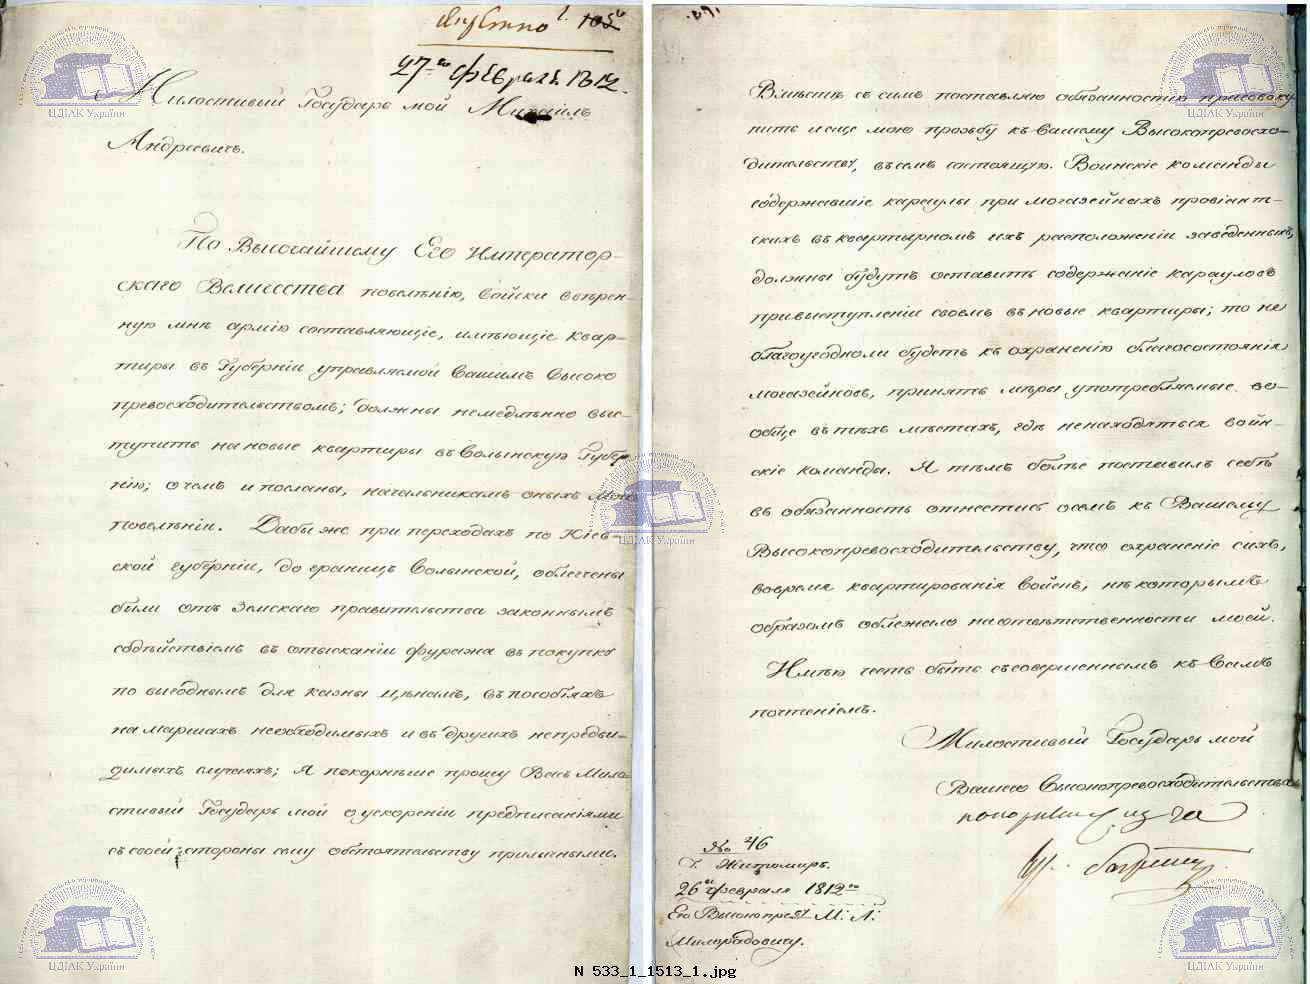 105
27го Февраля 1812.
Милостивый Государь мой Михаилъ
Андреевичъ.
По Высочайшему Его Император-
скаго Величества повелѣнію, войски ввѣрен-
ную мнѣ армію составляющіе, имѣющіе квар-
тиры въ Губерніи управляемой Вашимъ Высоко
превосходительствомъ; должны немедлѣнно выс-
тупить на новые квартиры въ Волынскую Губер
нію; о чемъ и посланы, начальникамъ оныхъ мои
повелѣнии. Дабы же при переходахъ по Кіев-
ской губерніи, до границъ Волынской, облегчены
были отъ Земскаго правительства законнымъ
содѣйствіемъ въ отысканіи фуража въ покупкѣ
по выгоднымъ для казны цѣнамъ, въ пособіяхъ
на маршахъ необходимыхъ и въ другихъ непредви-
димыхъ случаяхъ; Я покорнѣше прошу Васъ Мило
стивый Государь мой о ускореніи предписаніями
съ своей стороны сему обстоятельству приличными.
Вмѣстѣ съ симъ поставляю обязанностію присовоку
пить и еще мою прозьбу къ Вашему Высокопревосхо-
дительству, въ семъ состоящую. Воинскіе команды
содержавшіе караулы при могазейнахъ провіант-
скихъ въ квартирномъ ихъ расположеніи заведенныхъ,
должны будутъ оставить содержаніе карауловъ
при выступленіи своемъ въ новые квартиры; то не
благоугодноли будетъ къ охраненію благосостоянія
могазейновъ, принять мѣры употребляемые во-
обще въ тѣхъ мѣстахъ, гдѣ не находятся воин-
скіе команды. Я тѣмъ болѣе поставилъ себѣ
въ обязанность отнестись о семъ къ Вашему
Высокопревосходительству, что охраненіе сихъ,
вовремя квартированія войскъ, нѣкоторымъ
образомъ облежало на отвѣтственности моей.
Имѣю честь быть съ совершеннымъ къ Вамъ
почтеніемъ.
Милостивый Государь мой
Вашего Высокопревосходительства
покорный слуга
Кн. Багратион
No 46
Г. Житомиръ.
26го февраля 1812го
Его Высокопрев: М: А:
Милорадовичу.
ЦДІАК України
ЦДІАК України
ЦДІАК України
ЦДІАК України
ЦДІАК України
N 533_1_1513_1.jpg